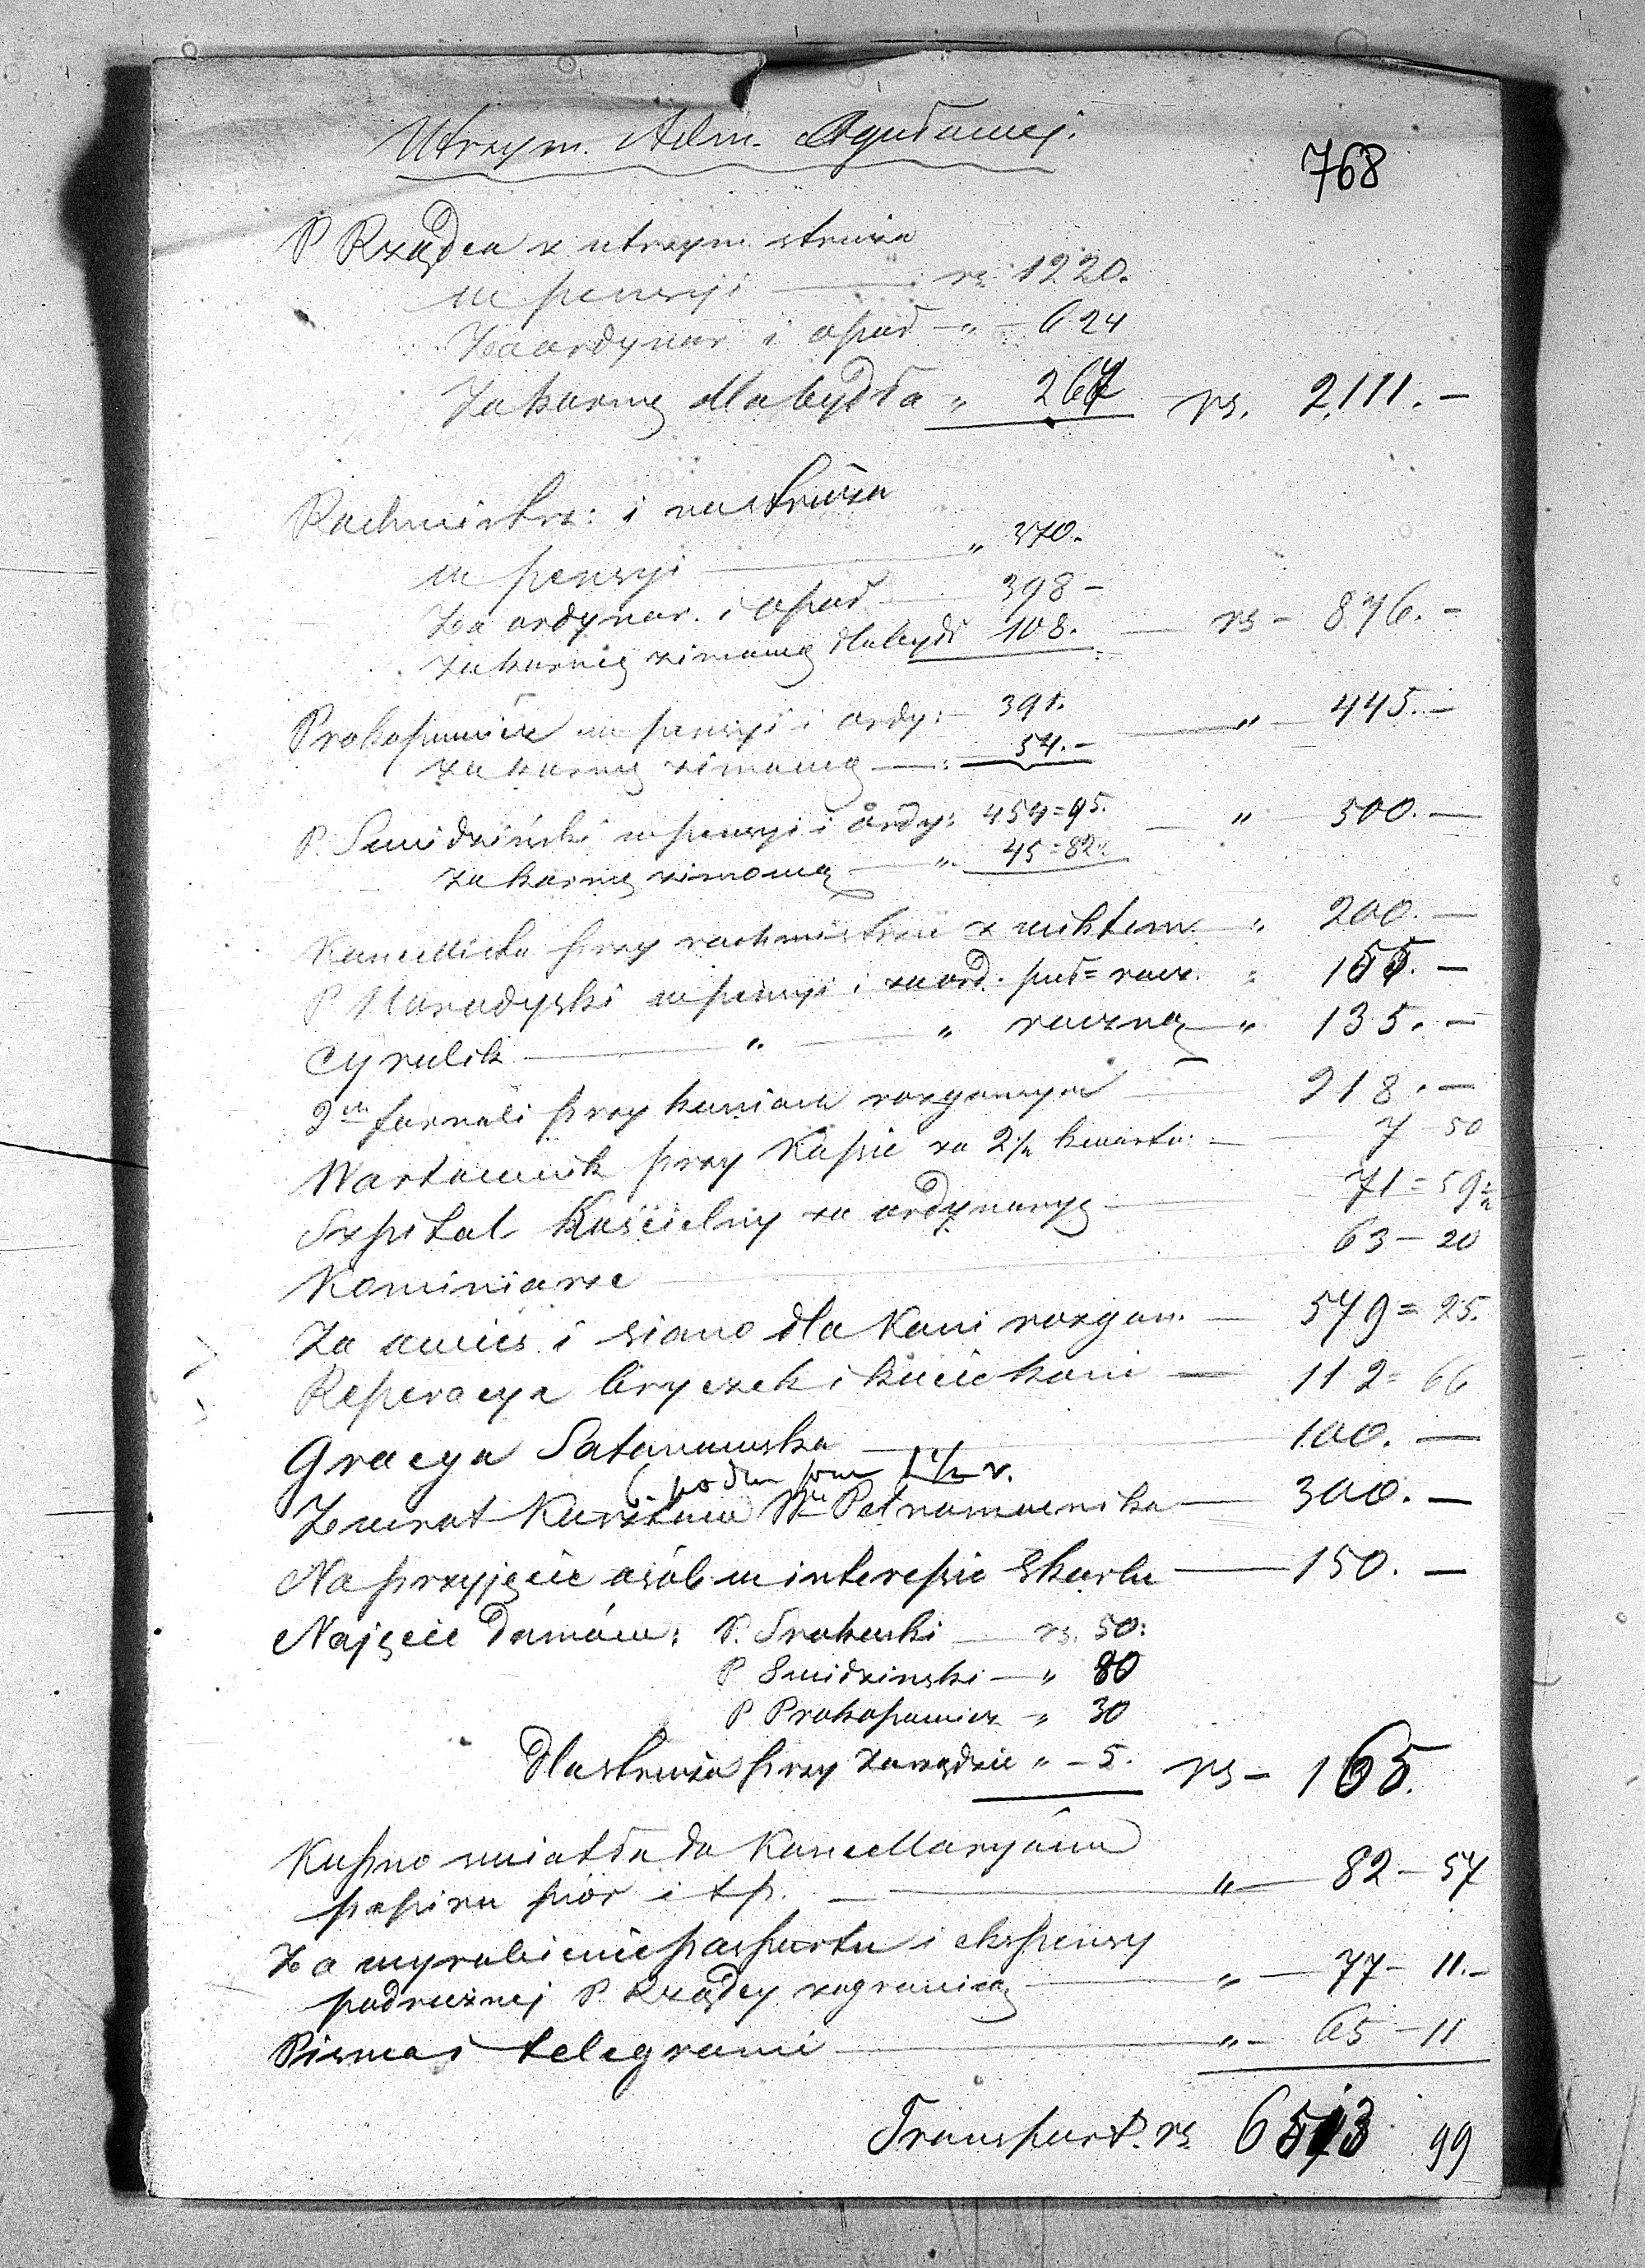 Utrzym. Adm. Ogułowej.
768
P Rządca z utrzym stróża
w pensyi — rs 1220.
Za ordynar i opał — „ — 624
Za karmę dla bydła „ 267 rs. 2,111. —
Rachmistrz: i na stróża
w pensyi — „ 370.
Za ordynar. i opał — 398 —
za karmę zimową dla bydł 108. — rs — 876. —
Prokopowicz w pensyi i ordy: — 391. — „ — 445. —
za karmę zimową — : 54. —
P. Swidziński w pensyi i ordy: 454 = 95. — „ 500. —
za karmę zimową — „ 45 = 82.
Kancelista przy rachmistrzu z wiktem „ 200. —
P w pensyi i za ord. puł = rocz. „ 155. —
Cyrulik — „ — „ roczną — „ 135. —
2ch fornali przy koniach rozgonnych — 218. —
Wartownik przy Kasie za 2 1/2 kwarta: — 7 50
Szpital Kościelny za ordynaryę — 71 = 59 1/2
Kominiarze — 63 — 20
Za owies i siano dla Koni rozgon. — 579 = 25.
Reperacya bryczek i kucie koni — 112 = 66
Gracya Satanowska — 100. —
(. po dn 1 1/2 r.
Zwrot Kosztów Wu Petnomocnika — 300. —
Na przyjęcie osób w interesie Skarbu — 150. —
Najęcie domów: P. — rs. 50:
P Swidzinski — „ 80
P Prokopowicz „ 30
Dla stróża przy zarządzie „ — 5. rs — 165.
Kupno swiatła do Kancellaryów
papiru piór i t p. — „ — 82 — 57
Za wyrobienie paszportu i ekspensy
podróżnej P Rządcy zagranicę — „ — 77 — 11. —
Pisma i telegrami — „ — 65 — 11
Transport. rs 6513 99